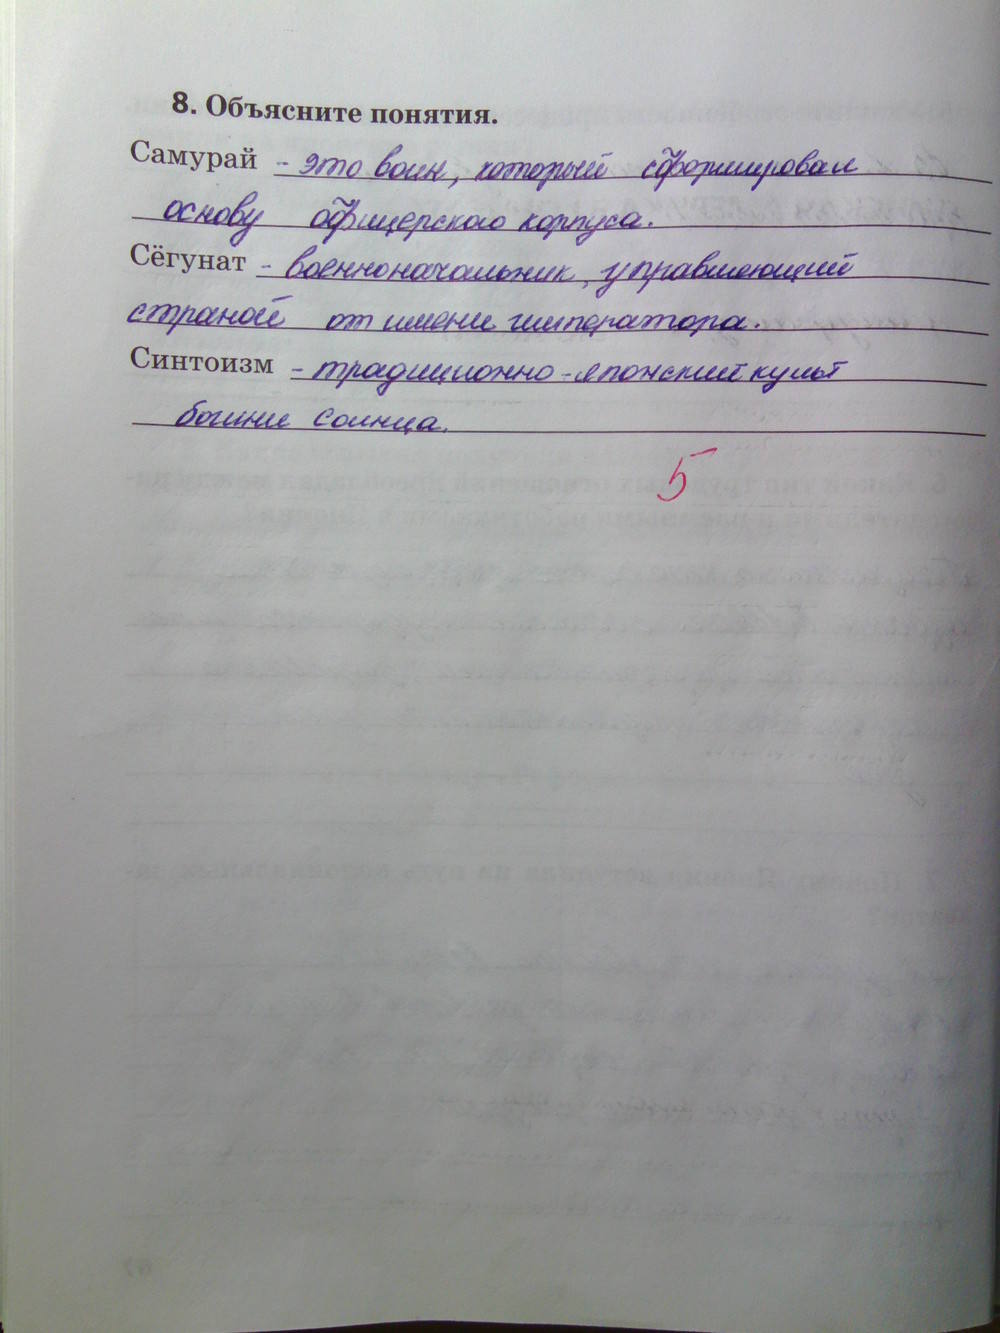 8. Объясните понятия.
Самурай - это воин, который сформировал
основу офицерского корпуса.
Сёгунат - военноначальник, управляющий
страной от имени императора.
Синтоизм - традиционно-японский культ
богини солнца.
5